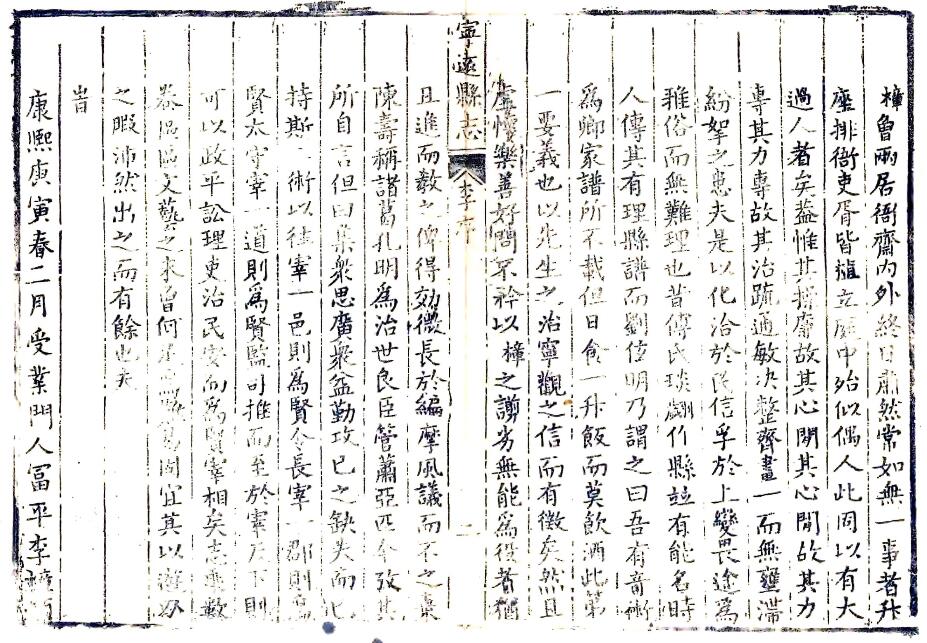 樟魯兩居衙齋內外終日肅然常如無一事者升
座排衙吏胥皆植立庭中殆似偶人此固以有大
過人者矣蓋惟其操廉故其心閒其心閒故其力
專其力專故其治疏通敏决整齊畫一而無壅滯
紛挐之患夫是以化洽於民信孚於上變畏途為
雅俗而無難理也昔傅氏琰翽父縣並有能名時
人傳其有理縣譜而劉信明乃謂之曰吾有竒術
為卿家譜所不載但日食一升飯而莫飲酒此第
一要義也以先生之治寧觀之信而有徵矣然且
虛懷樂善好問不矜以樟之謭劣無能為役者猶
寧遠縣志 李序 二
且進而教之俾得効微長於編摩風議而不之棄
陳壽稱諸葛孔明為治世良臣管蕭亞匹今攷其
所自言但曰集衆思廣衆益勤攻己之缺失而已
持斯術以往宰一邑則為賢令長宰一郡則為
賢太守宰一道則為賢監司推而至於宰天下則
可以政平訟理吏治民安而為賢宰相矣志乘數
卷區區文藝之末曾何足 宜其以游刃
之暇沛然出之而有餘也夫
旹
康熙庚寅春二月受業門人富平李